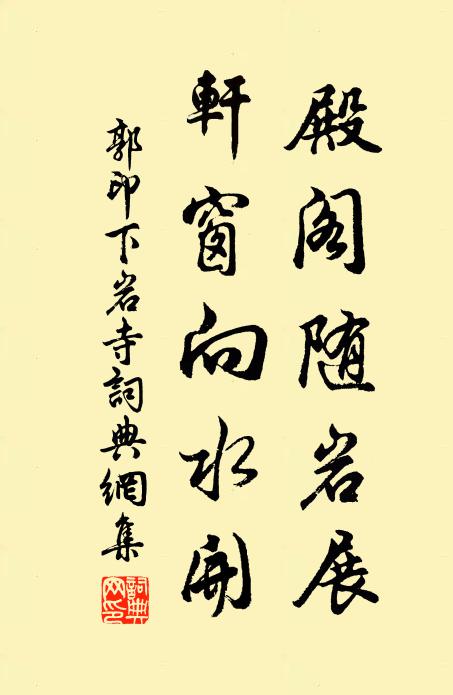 殿阁随岩展
軒窗向水開
郭印下岩寺詞典網集
詞典网印